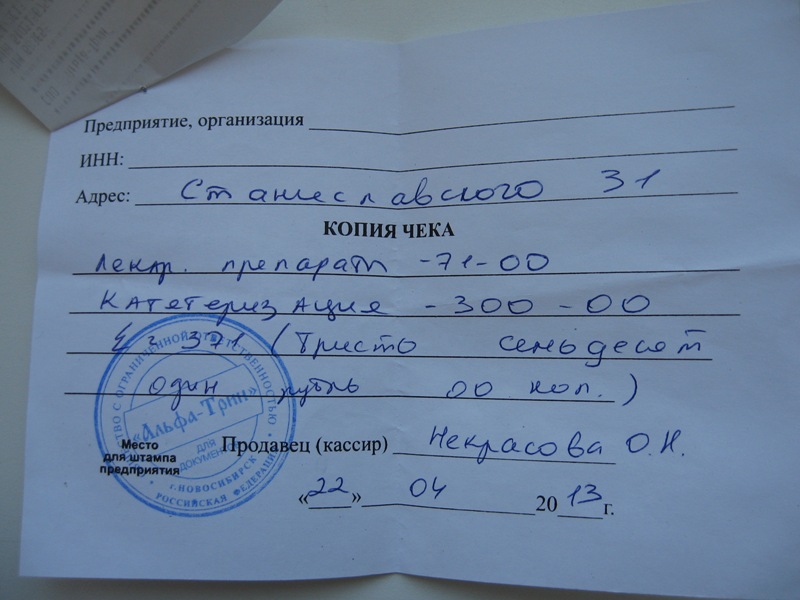 Предприятие, организация
ИНН:
Адрес: Станиславского 31
КОПИЯ ЧЕКА
Лекар. препараты -71-00
Катетеризация -300-00
Σ = 371 (Триста семьдесят
один рубль 00 коп.)
Продавец (кассир) Некрасова О.Н.
Место
для штампа
предприятия
«22» 04 2013 г.
ОБЩЕСТВО С ОГРАНИЧЕННОЙ ОТВЕТСТВЕННОСТЬЮ
«Альфа-Трин»
ДЛЯ
ДОКУМЕН
г.НОВОСИБИРСК
РОССИЙСКАЯ ФЕДЕРАЦИЯ